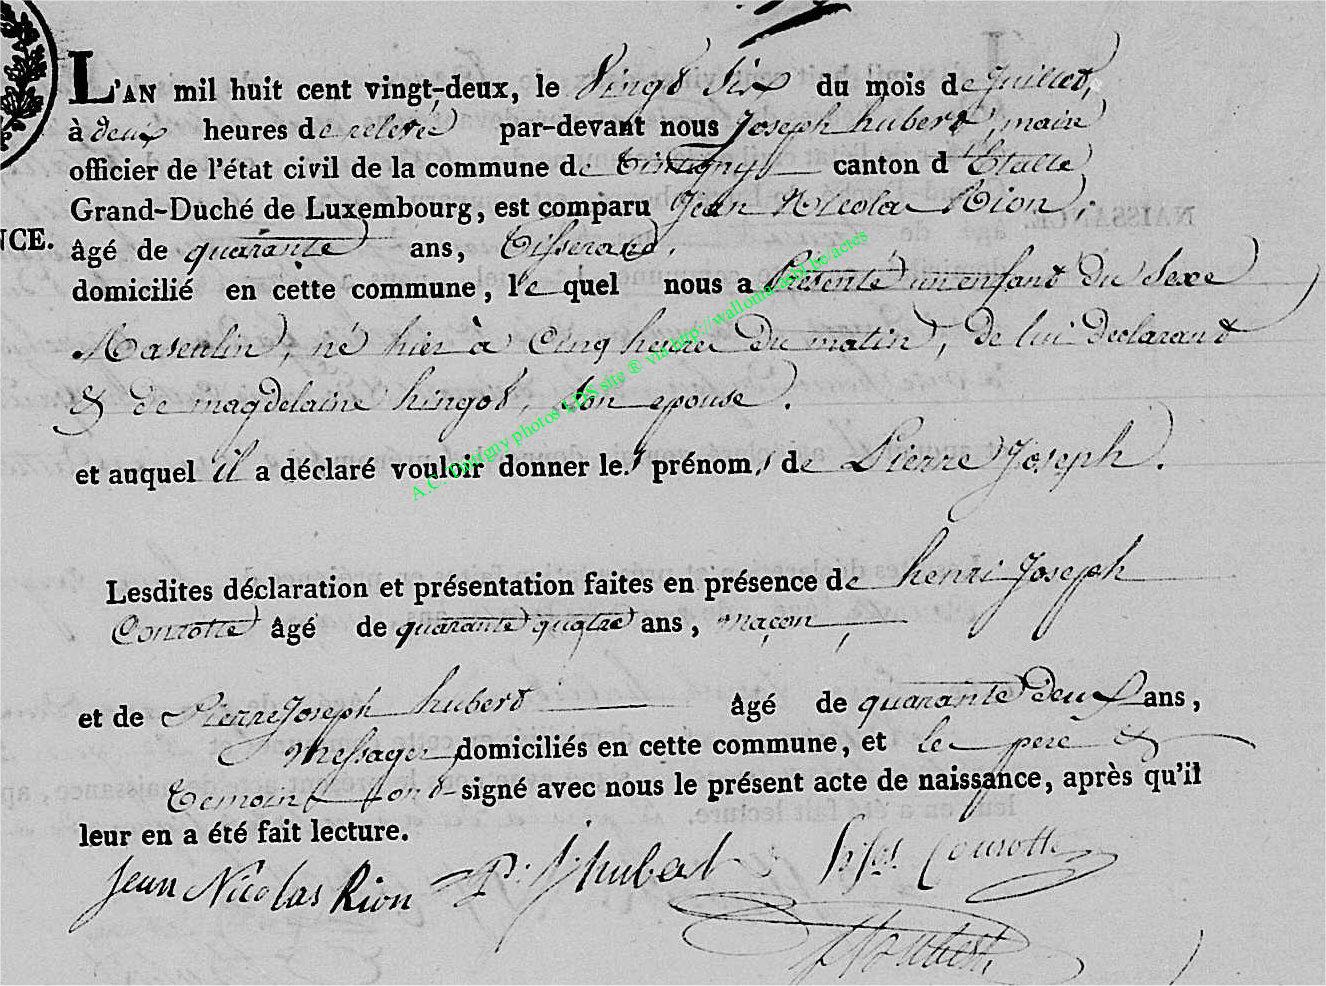 L'AN mil huit cent vingt-deux, le Vingt Six du mois de juillet,
à deux heures de relevé par-devant nous Joseph hubert, maire
officier de l'état civil de la commune de tintigny canton d'Etalle
Grand-Duché de Luxembourg, est comparu Jean Nicolas Rion,
NCE.
âgé de quarante ans, tisserand,
domicilié en cette commune, le quel nous a Présenté un enfant du Sexe
Masculin, né hier à Cinq heures du matin, de lui declarant
& de magdelaine hingot, Son epouse.
et auquel il a déclaré vouloir donner les prénoms de Pierre Joseph.
A.C. Tintigny photos LDS site ® via http://wallonia.asbl.be/actes
Lesdites déclaration et présentation faites en présence de henri Joseph
Conrotte âgé de quarante quatre ans, maçon,
et de Pierre Joseph hubert âgé de quarante deux ans,
Messager domiciliés en cette commune, et le pere &
temoins ont signé avec nous le présent acte de naissance, après qu'il
leur en a été fait lecture.
Jean Nicolas Rion P. J. hubert h. Jos. Conrotte
J Houbert